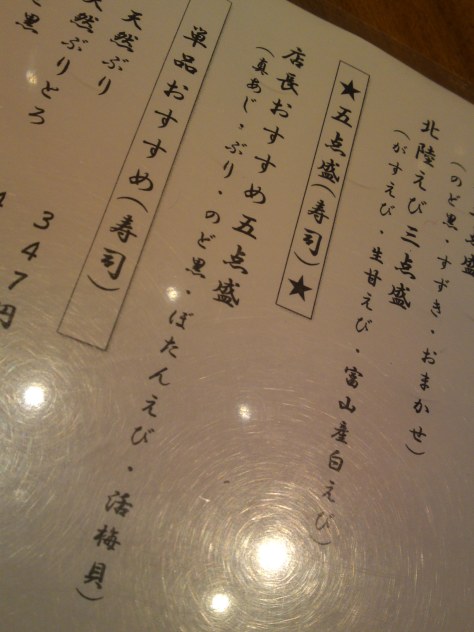 点盛
(のど黒・すずき・おまかせ)
北陸えび三点盛
(がすえび・生甘えび・富山産白えび)
★五点盛(寿司)★
店長おすすめ五点盛
(真あじ・ぶり・のど黒・ばたんえび・活梅貝)
単品おすすめ(寿司)
天然ぶり
天然ぶりとろ
347円